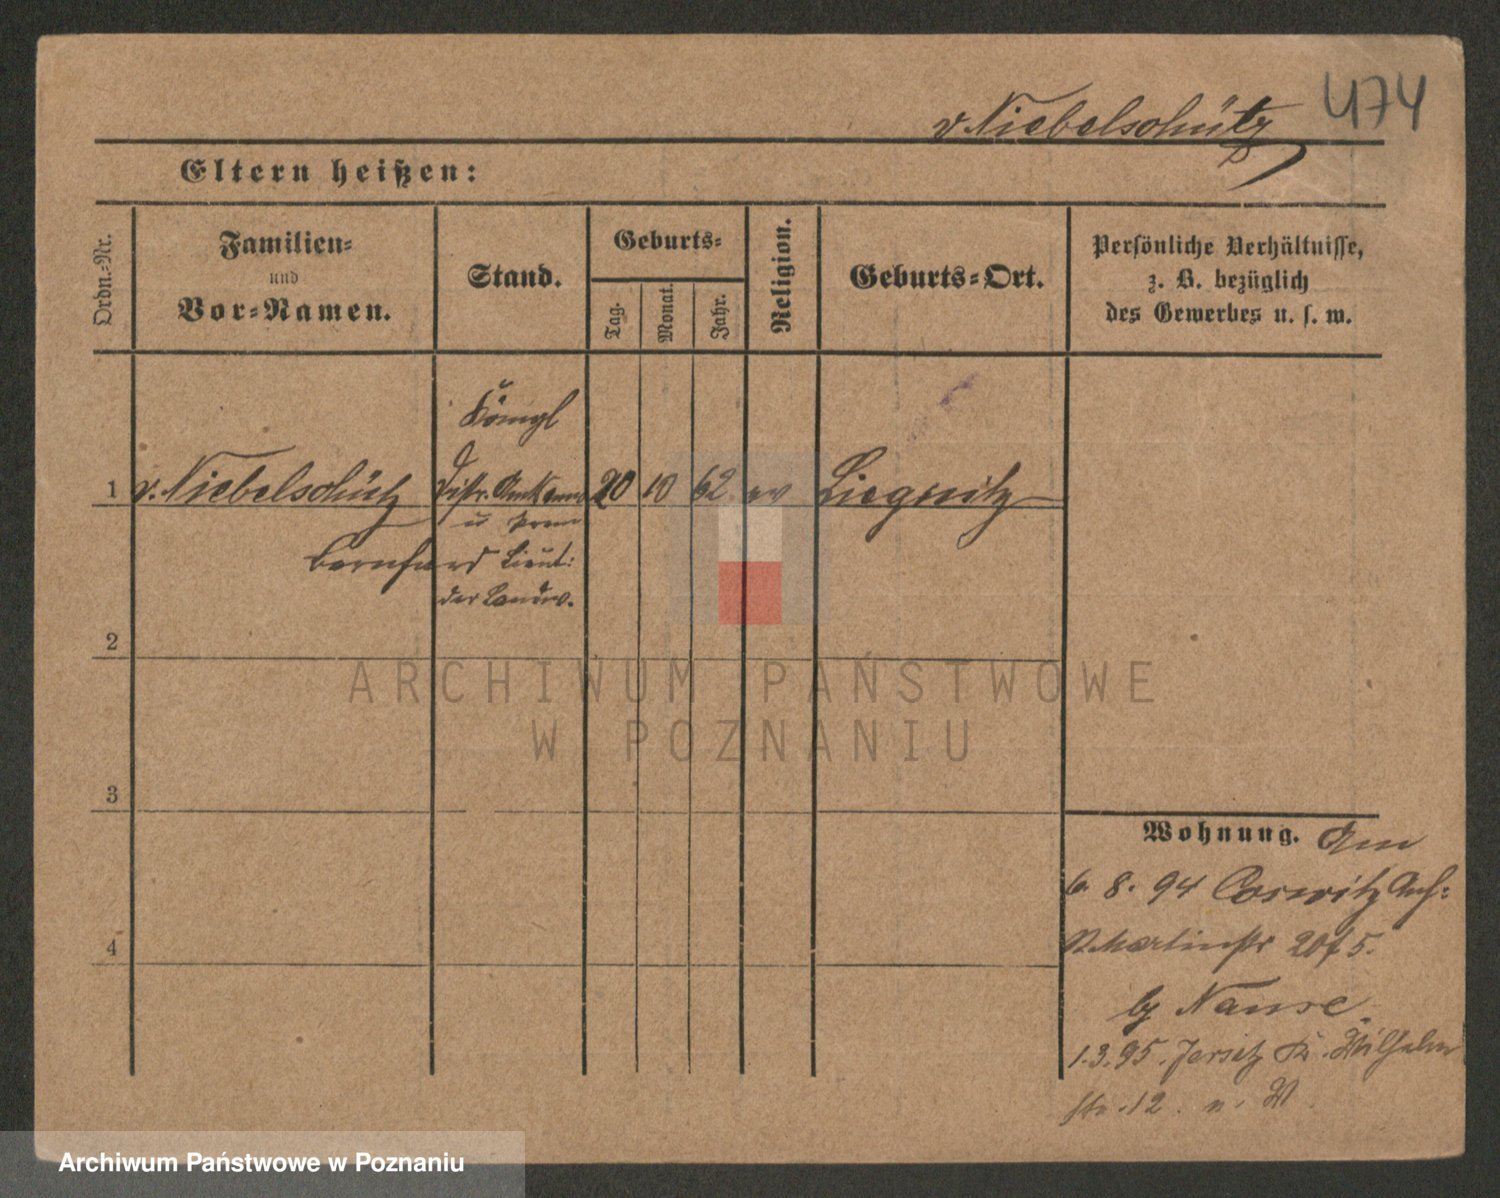 474
v Niebelschütz
Eltern heißen:
Ordn.-Nr.
Familien-
und
Vor-Namen.
Stand.
Geburts-
Tag.
Monat.
Jahr.
Religion.
Geburts-Ort.
Persönliche Verhältnisse,
z. B. bezüglich
des Gewerbes u. s. w.
Königl
1 v. Niebelschütz Distr. 20 10 62 ev Liegnitz
u Prem
Bernhard Lieut:
der Landw.
2
3
4
Wohnung. Am
6. 8. 94 Coswitz Anh:
St Martinstr 20 5.
by
1.3.95. Jersitz K. Wilhelm
str. 12. n. W
ARCHIWUM PAŃSTWOWE
W POZNANIU
Archiwum Państwowe w Poznaniu